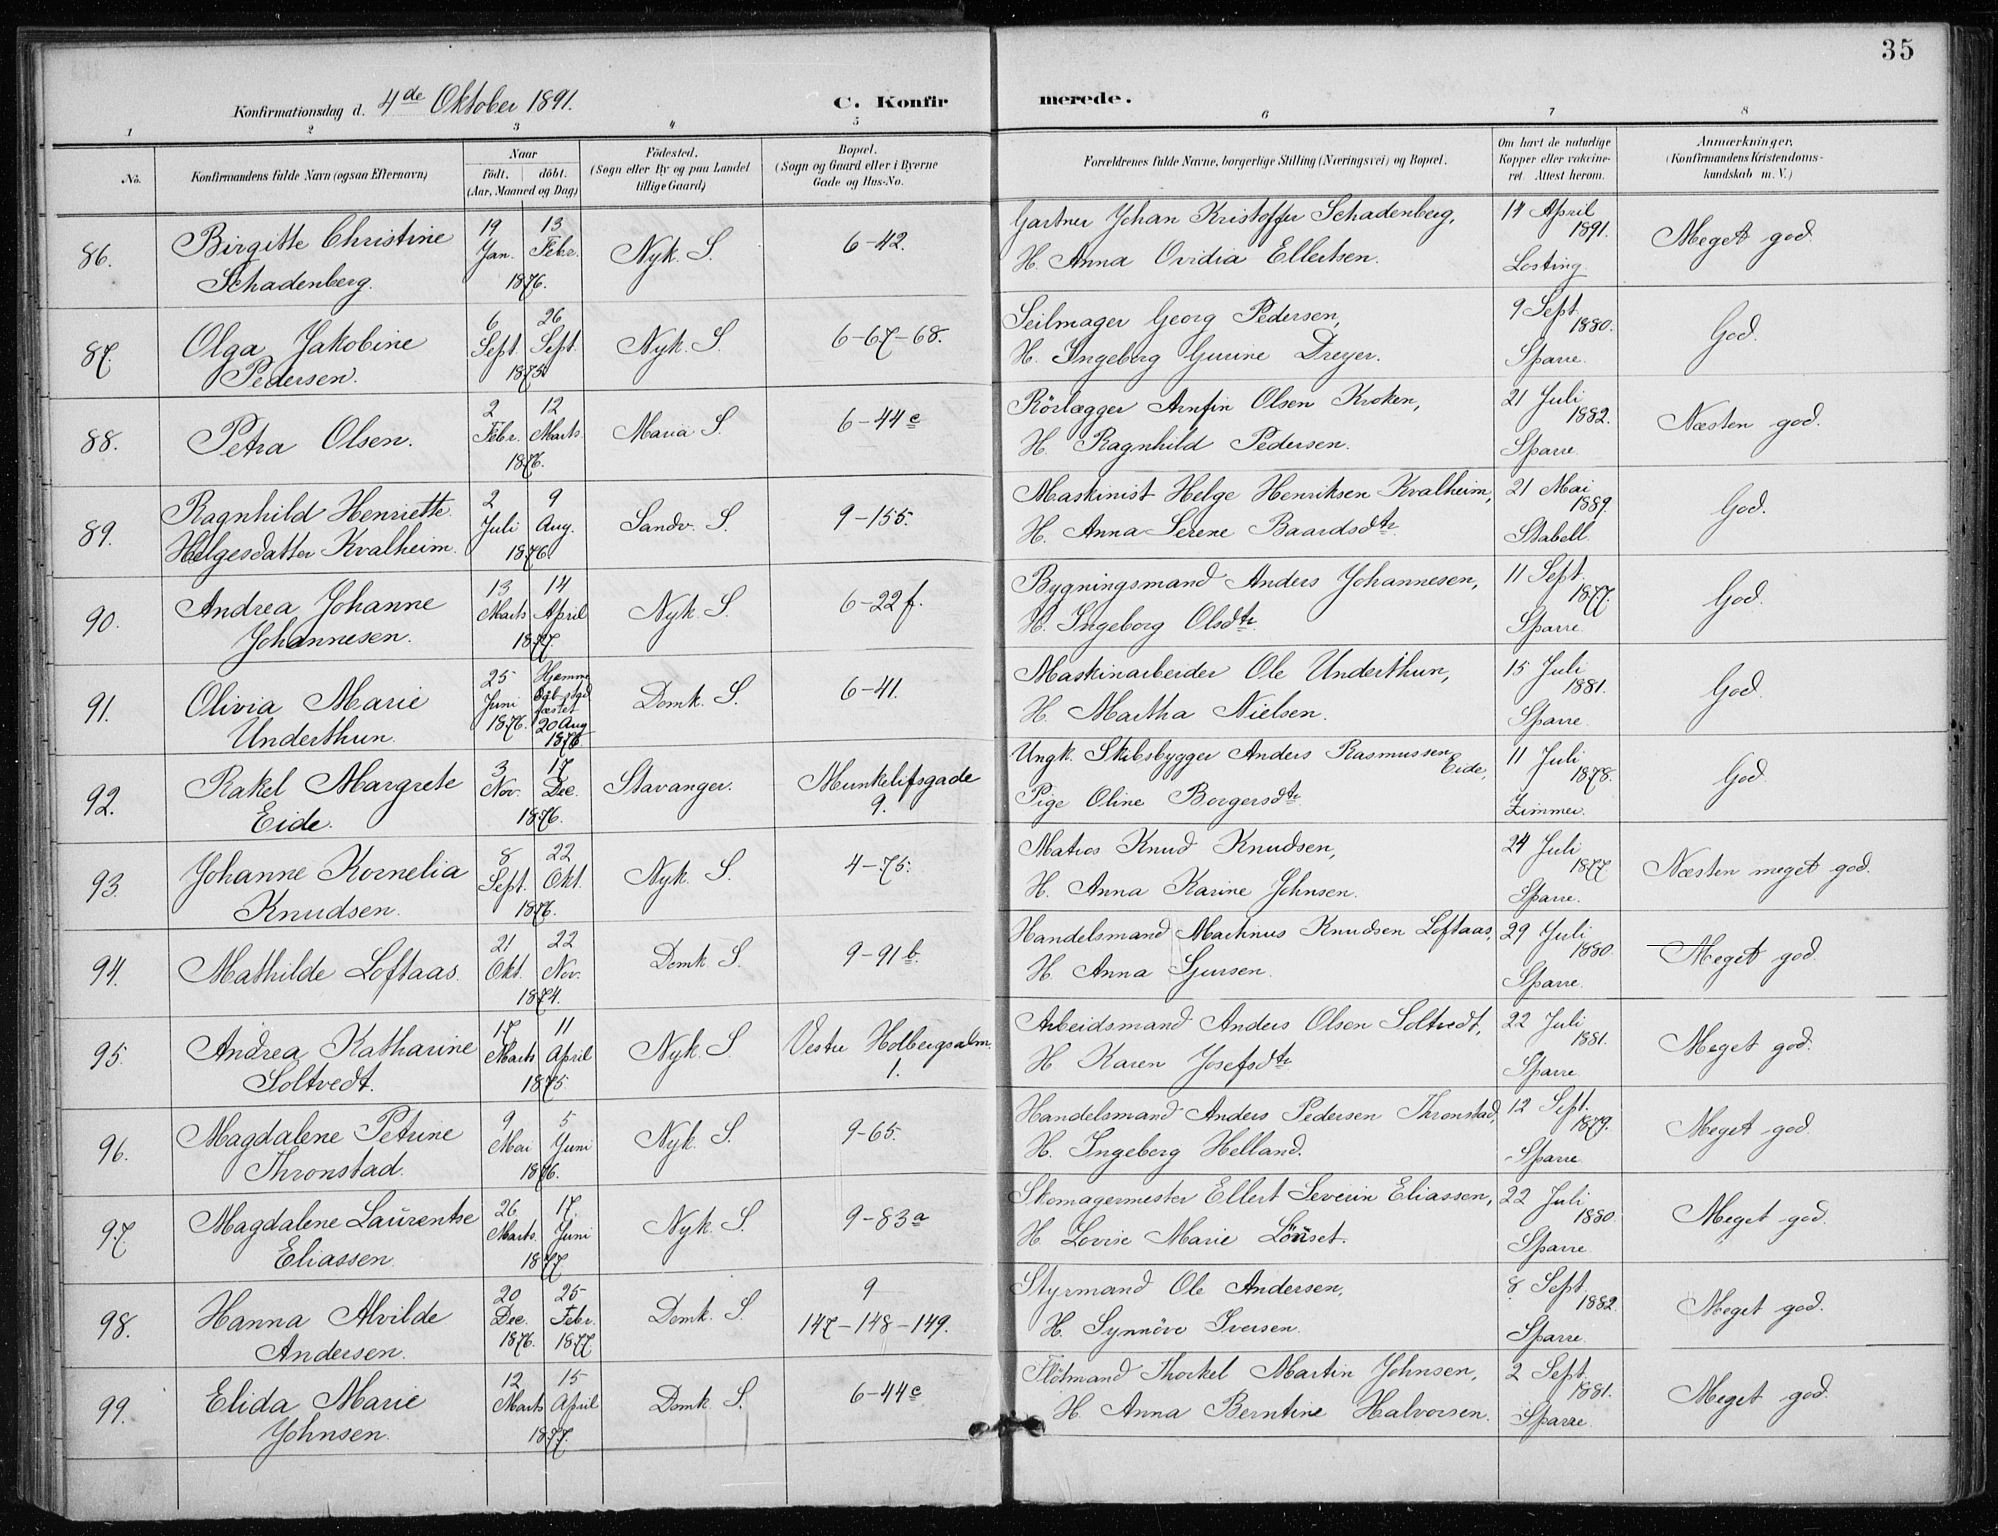 35
Konfirmationsdag d. 4de Oktober 1891.
C. Konfirmerede.
1 2 3 4 5 6 7 8
No. Konfirmandens fulde Navn (ogsaa Efternavn)
Naar
födt. döbt.
(Aar, Maaned og Dag)
Födested.
(Sogn eller By og paa Landet
tillige Gaard)
Bopæl.
(Sogn og Gaard eller i Byerne
Gade og Hus-No.
Forældrenes fulde Navne, borgerlige Stilling (Næringsvei) og Bopæl.
Om havt de naturlige
Kopper eller vakcine-
ret. Attest herom.
Anmærkninger,
(Konfirmandens Kristendoms-
kundskab m. V.)
86. Birgitte Christine
Schadenberg.
19 Jan. 13 Febr.
1876.
Nyk. S.
6-42.
Gartner Johan Kristoffer Schadenberg,
H. Anna Ovidia Ellertsen.
14 April
1891.
Losting
Meget god.
87. Olga Jakobine
Pedersen.
6 Sept. 26 Sept.
1875.
Nyk. S.
6-67-68.
Seilmager Georg Pedersen,
H. Ingeborg Gurine Dreyer.
9 Sept.
1880.
Sparre.
God.
88. Petra Olsen.
2 Febr. 12 Marts
1876.
Maria S.
6-44c
Rörlægger Arnfin Olsen Kroken,
H. Ragnhild Pedersen.
21 Juli
1882.
Sparre.
Næsten god.
89. Ragnhild Henriette
Helgesdatter Kvalheim.
2 Juli 9 Aug.
1876
Sandv. S.
9-155.
Maskinist Helge Henriksen Kvalheim,
H. Anna Serene Baardsdtr.
21 Mai
1889.
Stabell.
God.
90. Andrea Johanne
Johannesen.
13 Marts 14 April
1877.
Nyk. S.
6-22f.
Bygningsmand Anders Johannesen,
H. Ingeborg Olsdtr.
11 Sept.
1877.
Sparre.
God.
91. Olivia Marie
Underthun.
25 Juni 1876.
Hjemme
döb stad
fæstet
20 Aug
1876
Domk. S.
6-41.
Maskinarbeider Ole Underthun,
H. Martha Nielsen.
15 Juli
1881.
Sparre.
God.
92. Rakel Margrete
Eide.
3 Nov. 17 Dec.
1876.
Stavanger.
Munkelifsgade
9.
Ungk. Skibsbygger Anders Rasmussen
Eide,
Pige Oline Borgersdtr.
11 Juli
1878.
Zimmer.
God.
93. Johanne Kornelia
Knudsen.
8 Sept. 22 Okt.
1876.
Nyk. S.
4-75.
Matros Knud Knudsen,
H. Anna Karine Johnsen.
24 Juli
1877.
Sparre.
Næsten meget god.
94. Mathilde Loftaas.
21 Okt. 22 Nov.
1874.
Domk S.
9-91b.
Handelsmand Martinus Knudsen Loftaas,
H. Anna Sjursen.
29 Juli
1880.
Sparre.
Meget god
95. Andrea Katharine
Soltvedt.
17 Marts 11 April
1875.
Nyk. S.
Vestre Holbergsalm.
1.
Arbeidsmand Anders Olsen Soltvedt,
H Karen Josefsdtr.
22 Juli
1881.
Sparre.
Meget god.
96. Magdalene Petrine
Thronstad.
9 Mai 5 Juni
1876.
Nyk. S.
9-65.
Handelsmand Anders Pedersen Thronstad,
H. Ingeborg Helland.
12 Sept.
1879.
Sparre
Meget god.
97. Magdalene Laurentse
Eliassen.
26 Marts. 17. Juni
1877
Nyk. S.
9-83a
Skomagermester Ellert Severin Eliassen,
H. Lovise Marie Lönset.
22 Juli
1880.
Sparre
Meget god.
98. Hanna Alvilde
Andersen.
20 Dec. 1876. 25 Febr. 1877.
Domk. S.
9
147-148-149.
Styrmand Ole Andersen,
H. Synnöve Iversen.
8 Sept.
1882.
Sparre.
Meget god.
99. Elida Marie
Johnsen.
12 Marts 15 April
1877.
Domk. S.
6-44c
Flötmand Thorkel Martin Johnsen,
H. Anna Berntine Halvorsen.
2 Sept.
1881.
Sparre.
Meget god.